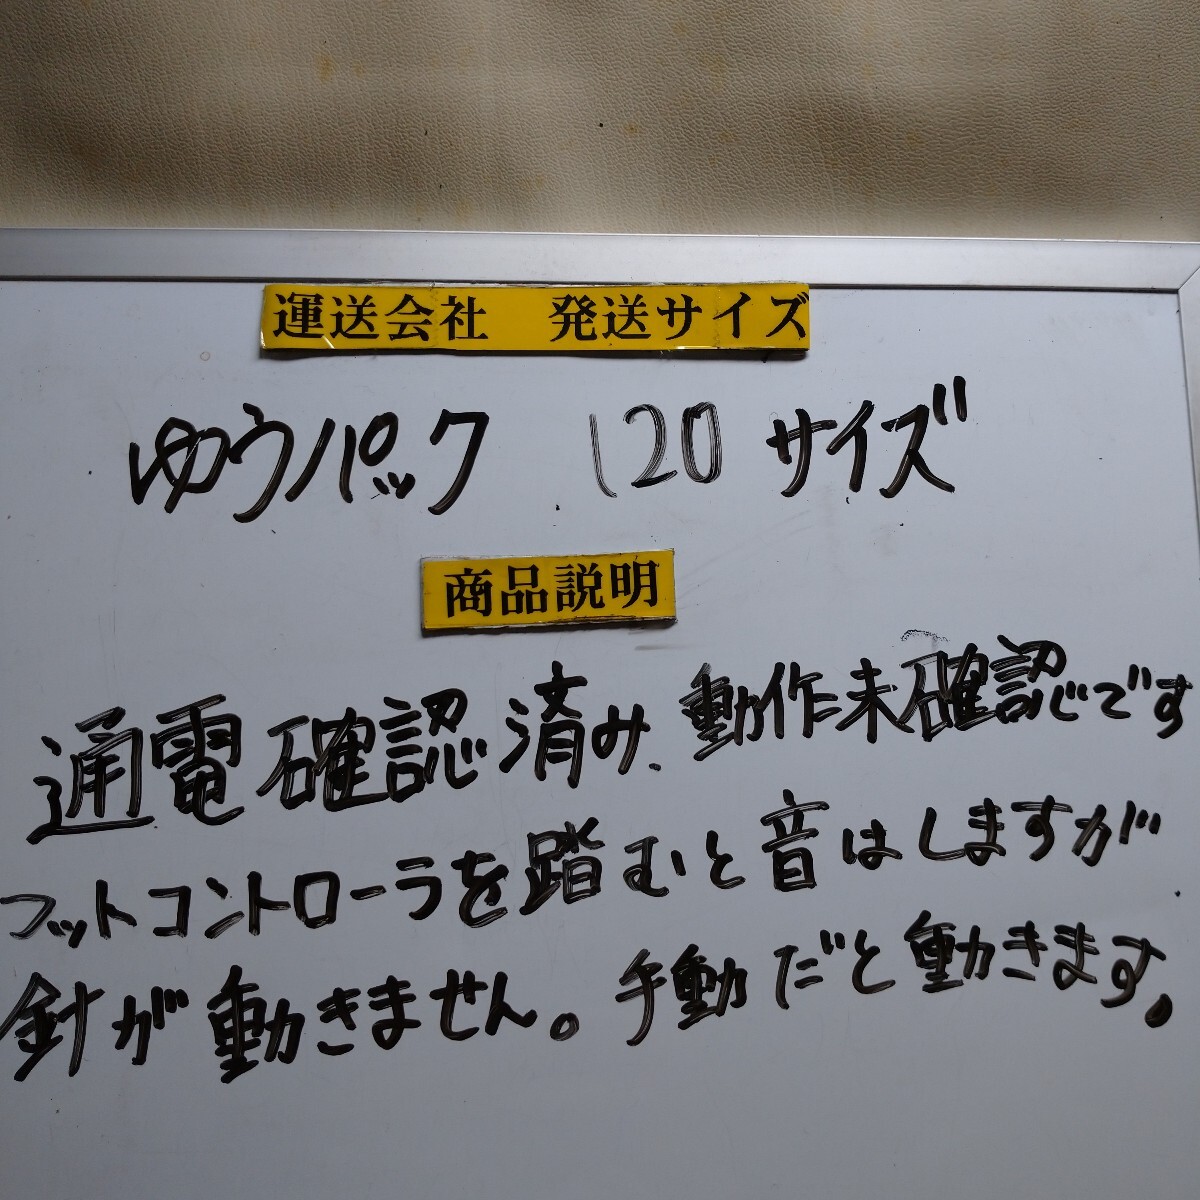 運送会社　発送サイズ
ゆうパック　120サイズ
商品説明
通電確認済み、動作未確認です
フットコントローラを踏むと音はしますが
針が動きません。手動だと動きます。